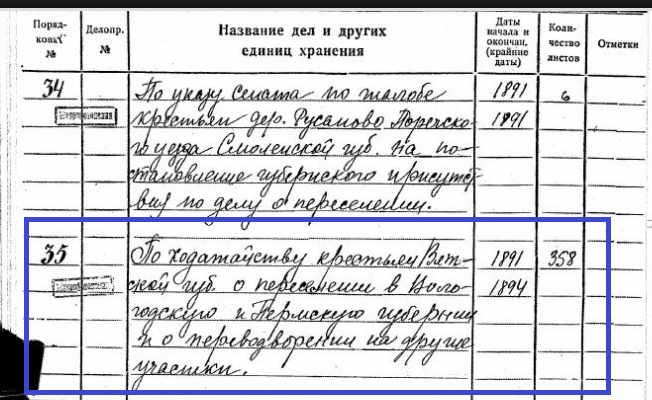 Поряд-
ковый
№
Делопр.
№
Название дел и других
единиц хранения
Даты
начала и
окончан.
(крайние
даты)
Коли-
чество
листов
Отметки
34
По указу сената по жалобе
крестьян дер. Русаново Поречско-
го уезда Смоленской губ. на по-
становление губернского присутст-
вия по делу о переселении.
1891
1891
6
35
По ходатайству крестьян Вят-
ской губ. о переселении в Воло-
годскую и Пермскую губернии
и о переводворении на другие
участки.
1891
1894
358